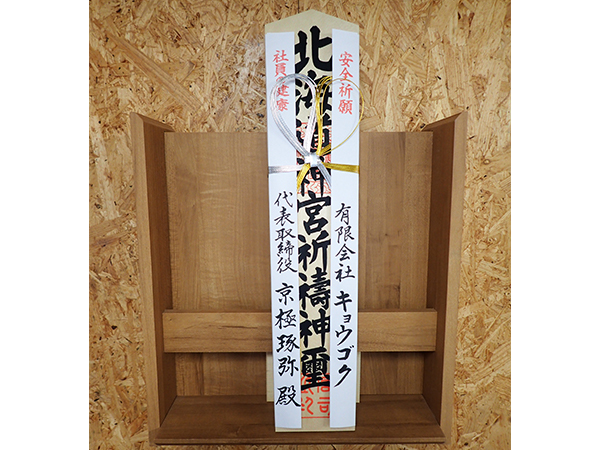 安全祈願
有限会社 キョウゴク
北海道神宮祈禱神璽
社員 健康
代表取締役 京極琢弥殿